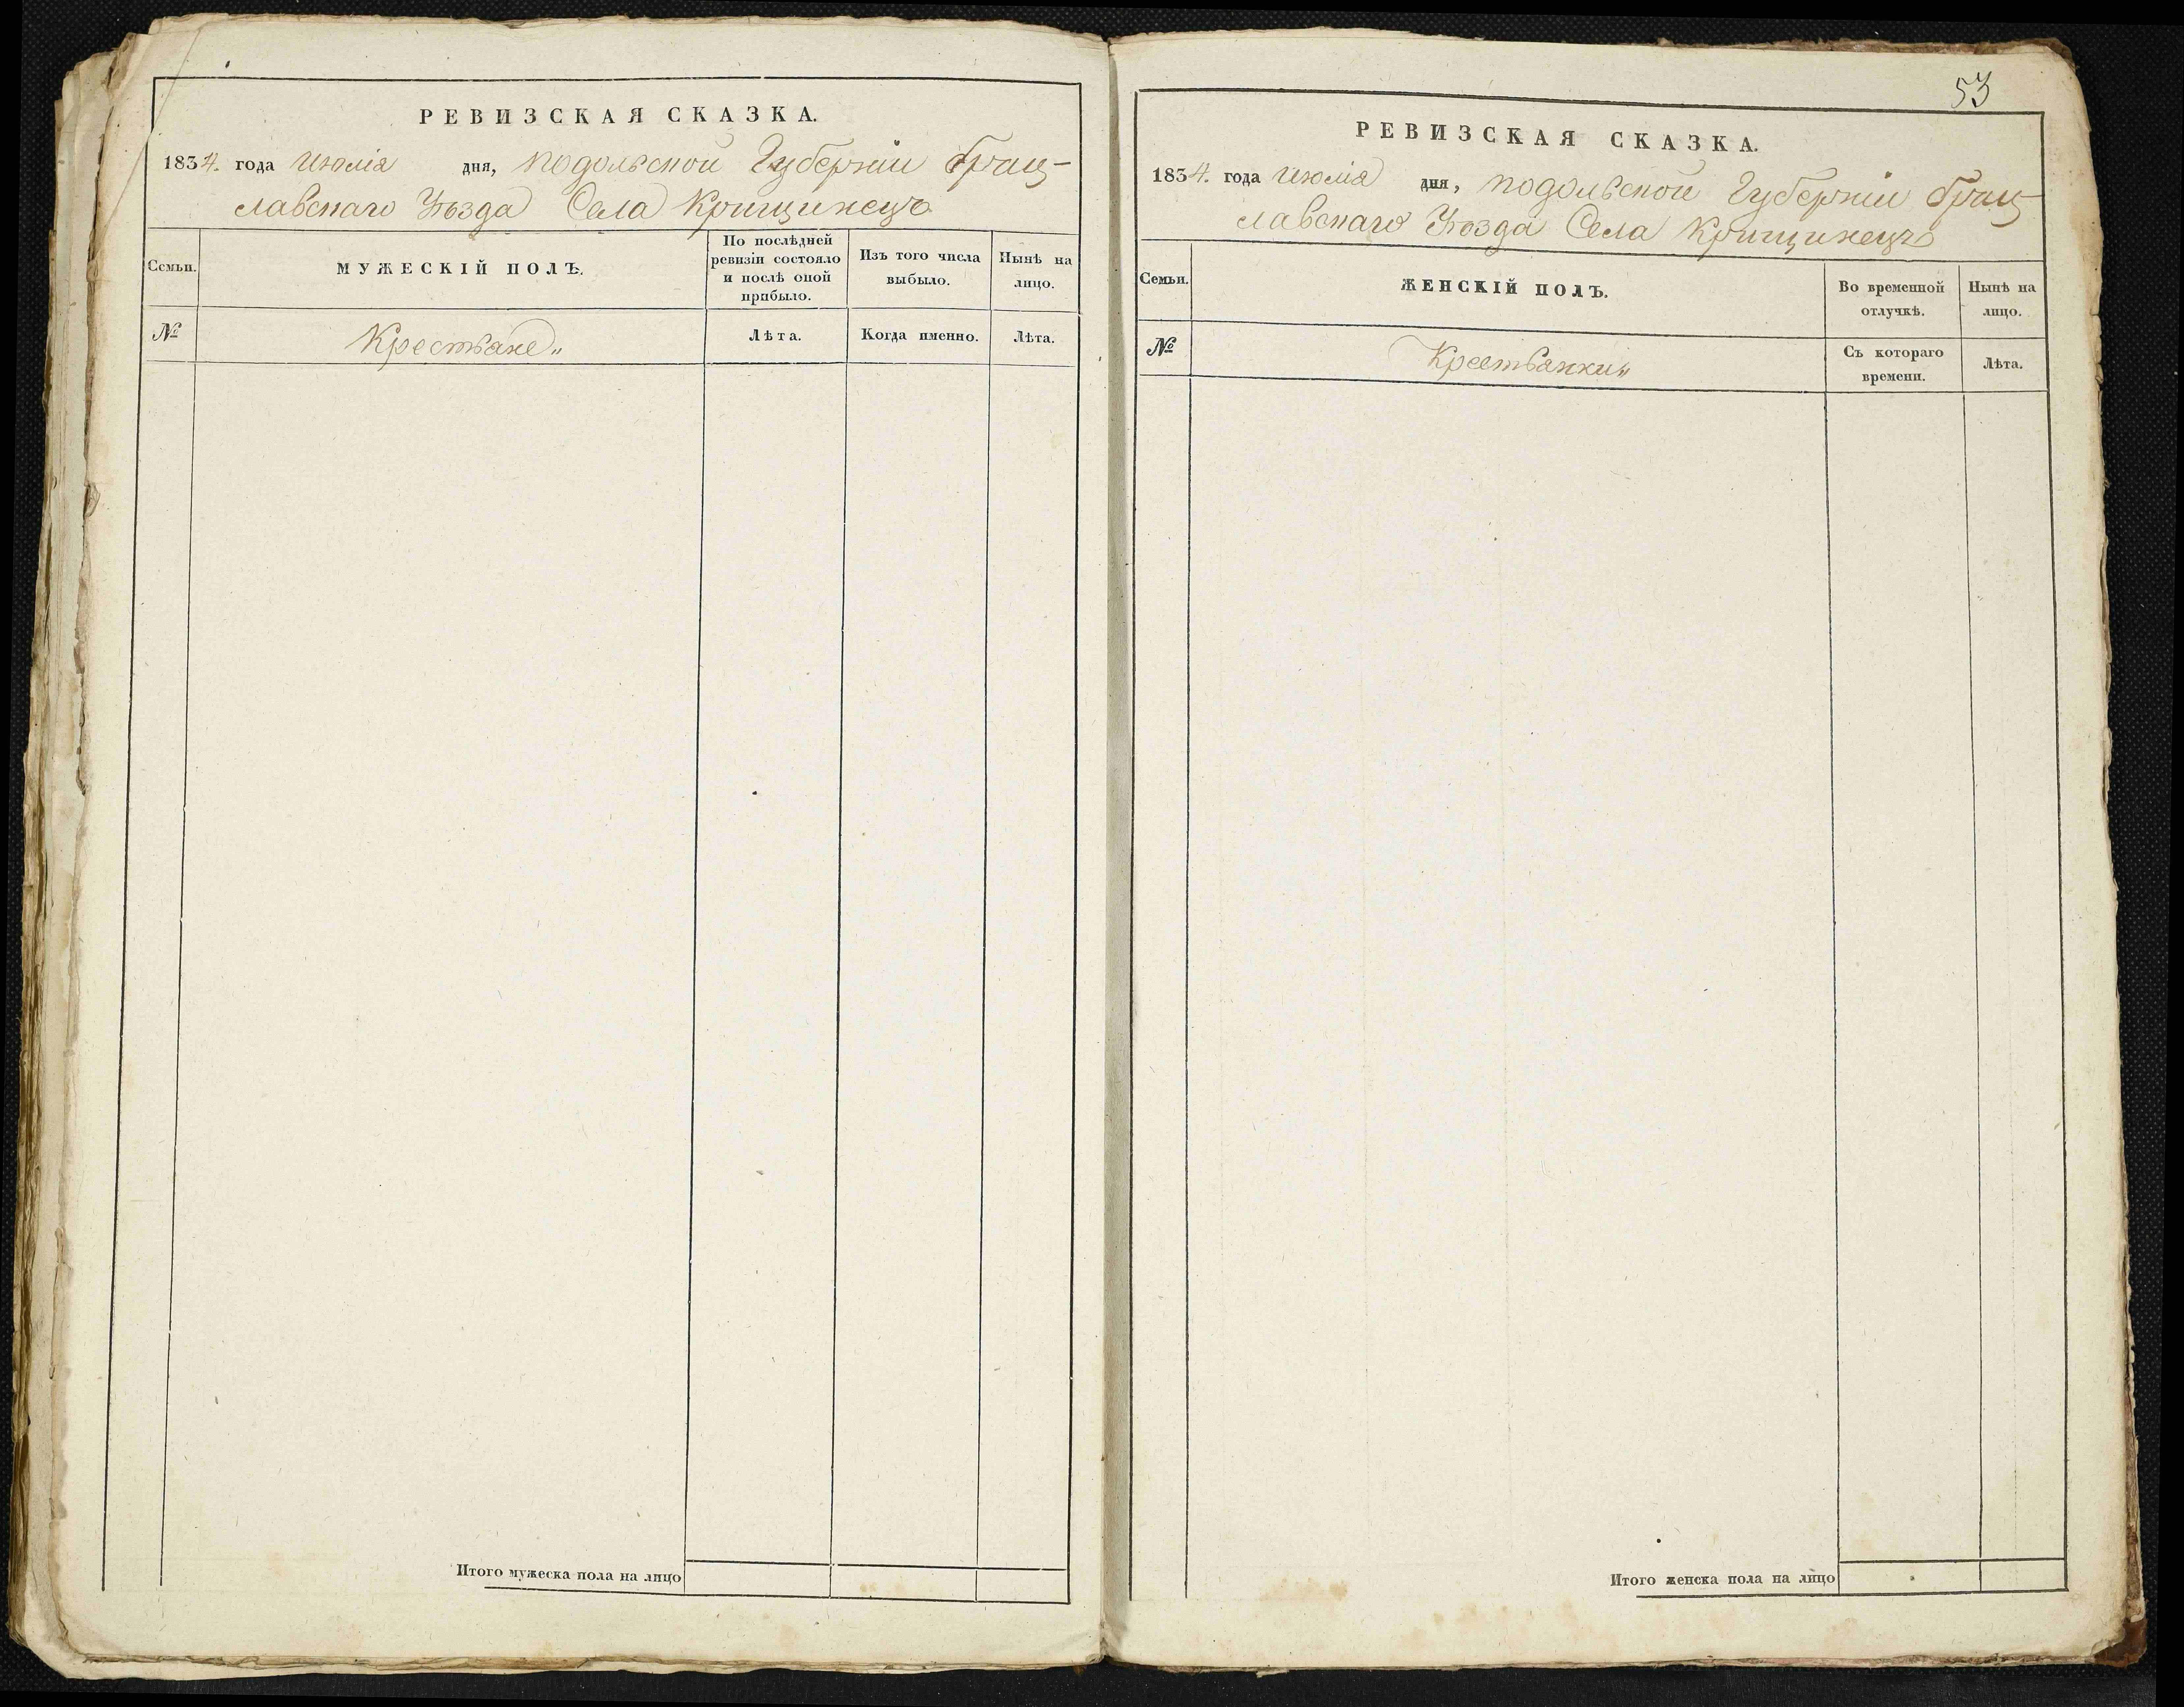 РЕВИЗСКАЯ СКАЗКА.
1834. года Июлія дня, Подольской Губерніи Брац-
лавскаго Уѣзда Села Крищинецъ
Семьи.
МУЖЕСКІЙ ПОЛЪ.
По послѣдней
ревизіи состояло
и послѣ оной
прибыло.
Изъ того числа
выбыло.
Нынѣ на
лицо.
№
Крестьяне„
Лѣта.
Когда именно.
Лѣта.
Итого мужеска пола на лицо
53
РЕВИЗСКАЯ СКАЗКА.
1834. года Июлія дня, Подольской Губерніи Брац
лавскаго Уѣзда Села Крищинецъ
Семьи.
ЖЕНСКІЙ ПОЛЪ.
Во временной
отлучкѣ.
Нынѣ на
лицо.
№
Крестьянки„
Съ котораго
времени.
Лѣта.
Итого женска пола на лицо